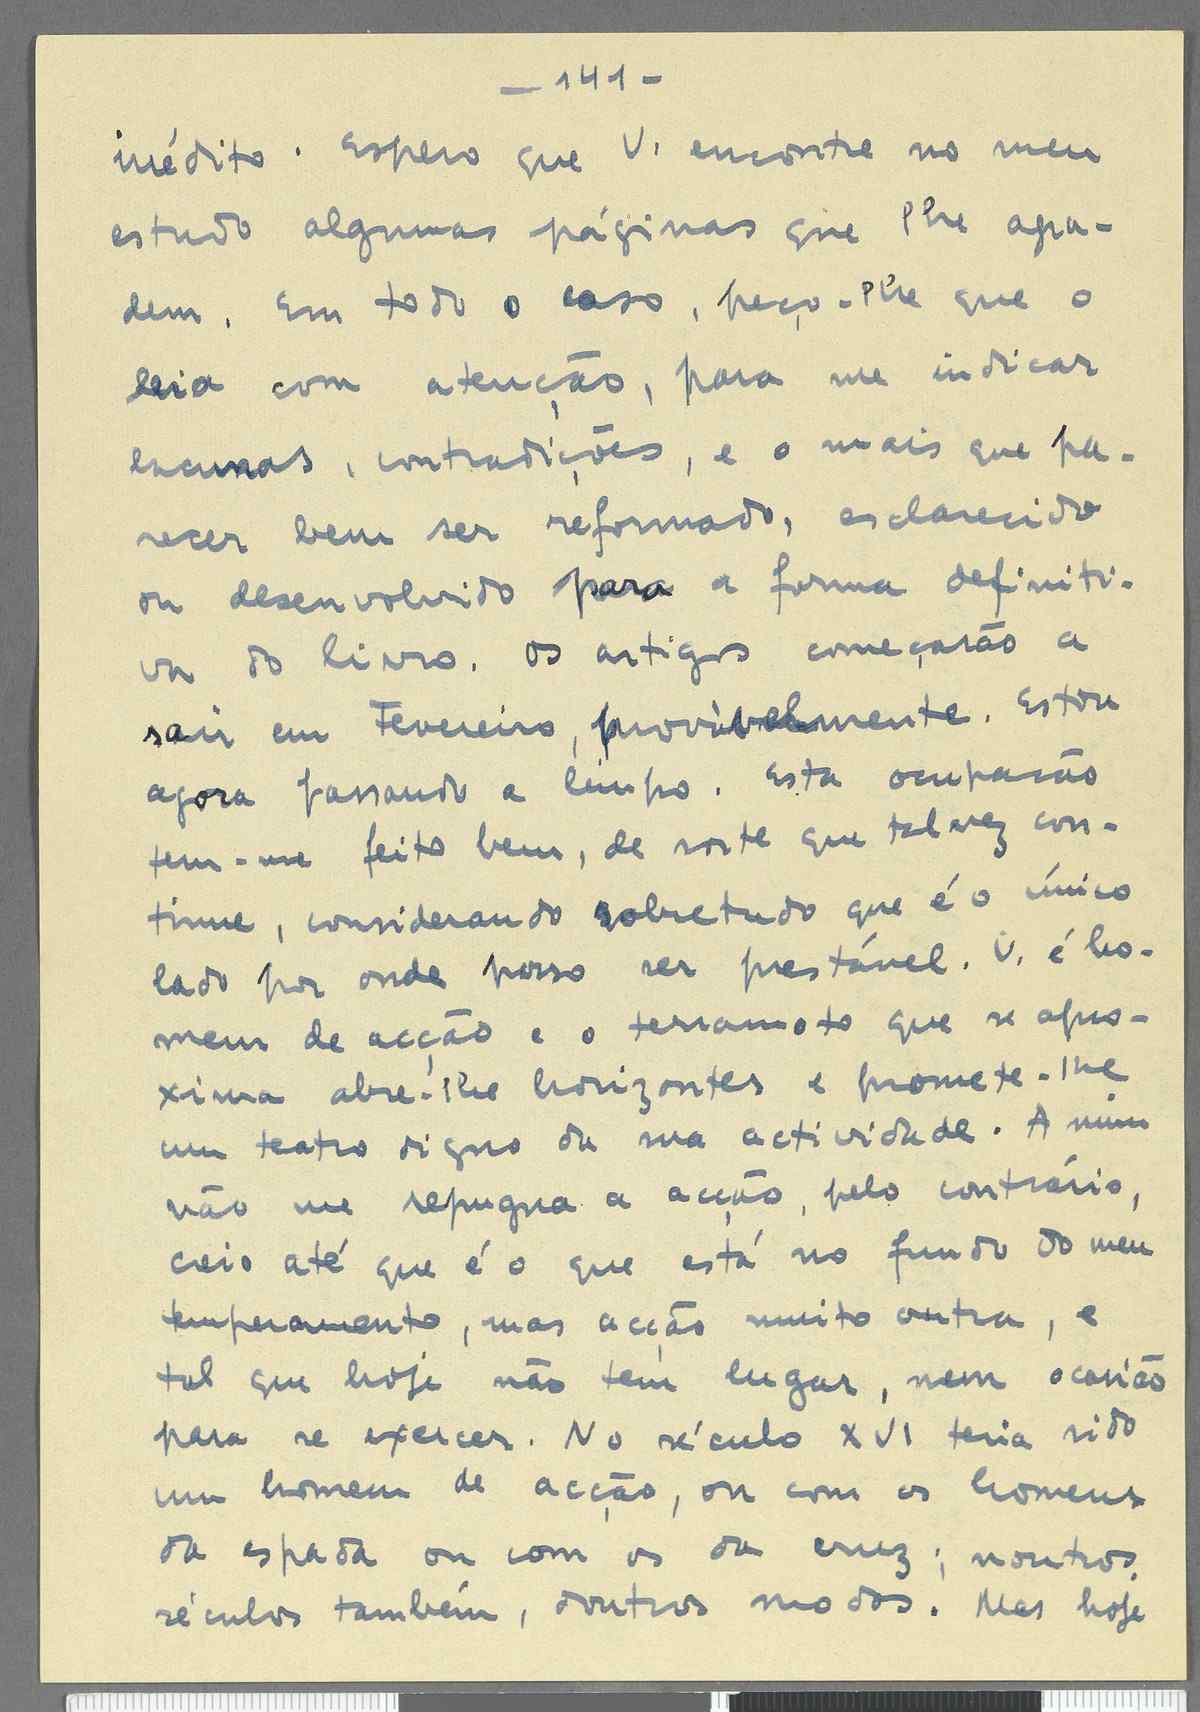 — 141 —
inédito. Espero que V. encontre no meu
estudo algumas páginas que lhe agra-
dem. Em todo o caso, peço-lhe que o
leia com atenção, para me indicar
lacunas, contradições, e o mais que pa-
recer bem ser reformado, esclarecido
ou desenvolvido para a forma definiti-
va do livro. Os artigos começarão a
sair em Fevereiro, provàvelmente. Estou
agora passando a limpo. Esta ocupação
tem-me feito bem, de sorte que talvez con-
tinue, considerando sobretudo que é o único
lado por onde posso ser prestável. V. é ho-
mem de acção e o terramoto que se apro-
xima abre-lhe horizontes e promete-lhe
um teatro digno da sua actividade. A mim
não me repugna a acção, pelo contrário,
creio até que é o que está no fundo do meu
temperamento, mas acção muito outra, e
tal que hoje não tem lugar, nem ocasião
para se exercer. No século XVI teria sido
um homem de acção, ou com os homens
da espada ou com os da cruz; noutros
séculos também, doutros modos. Mas hoje